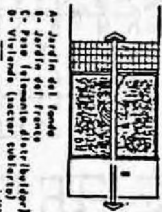 A- Jardín del fondo
B- Jardín del frente
C- Paso (elemento distribuidor)
D- Vivienda (sector cubierto)